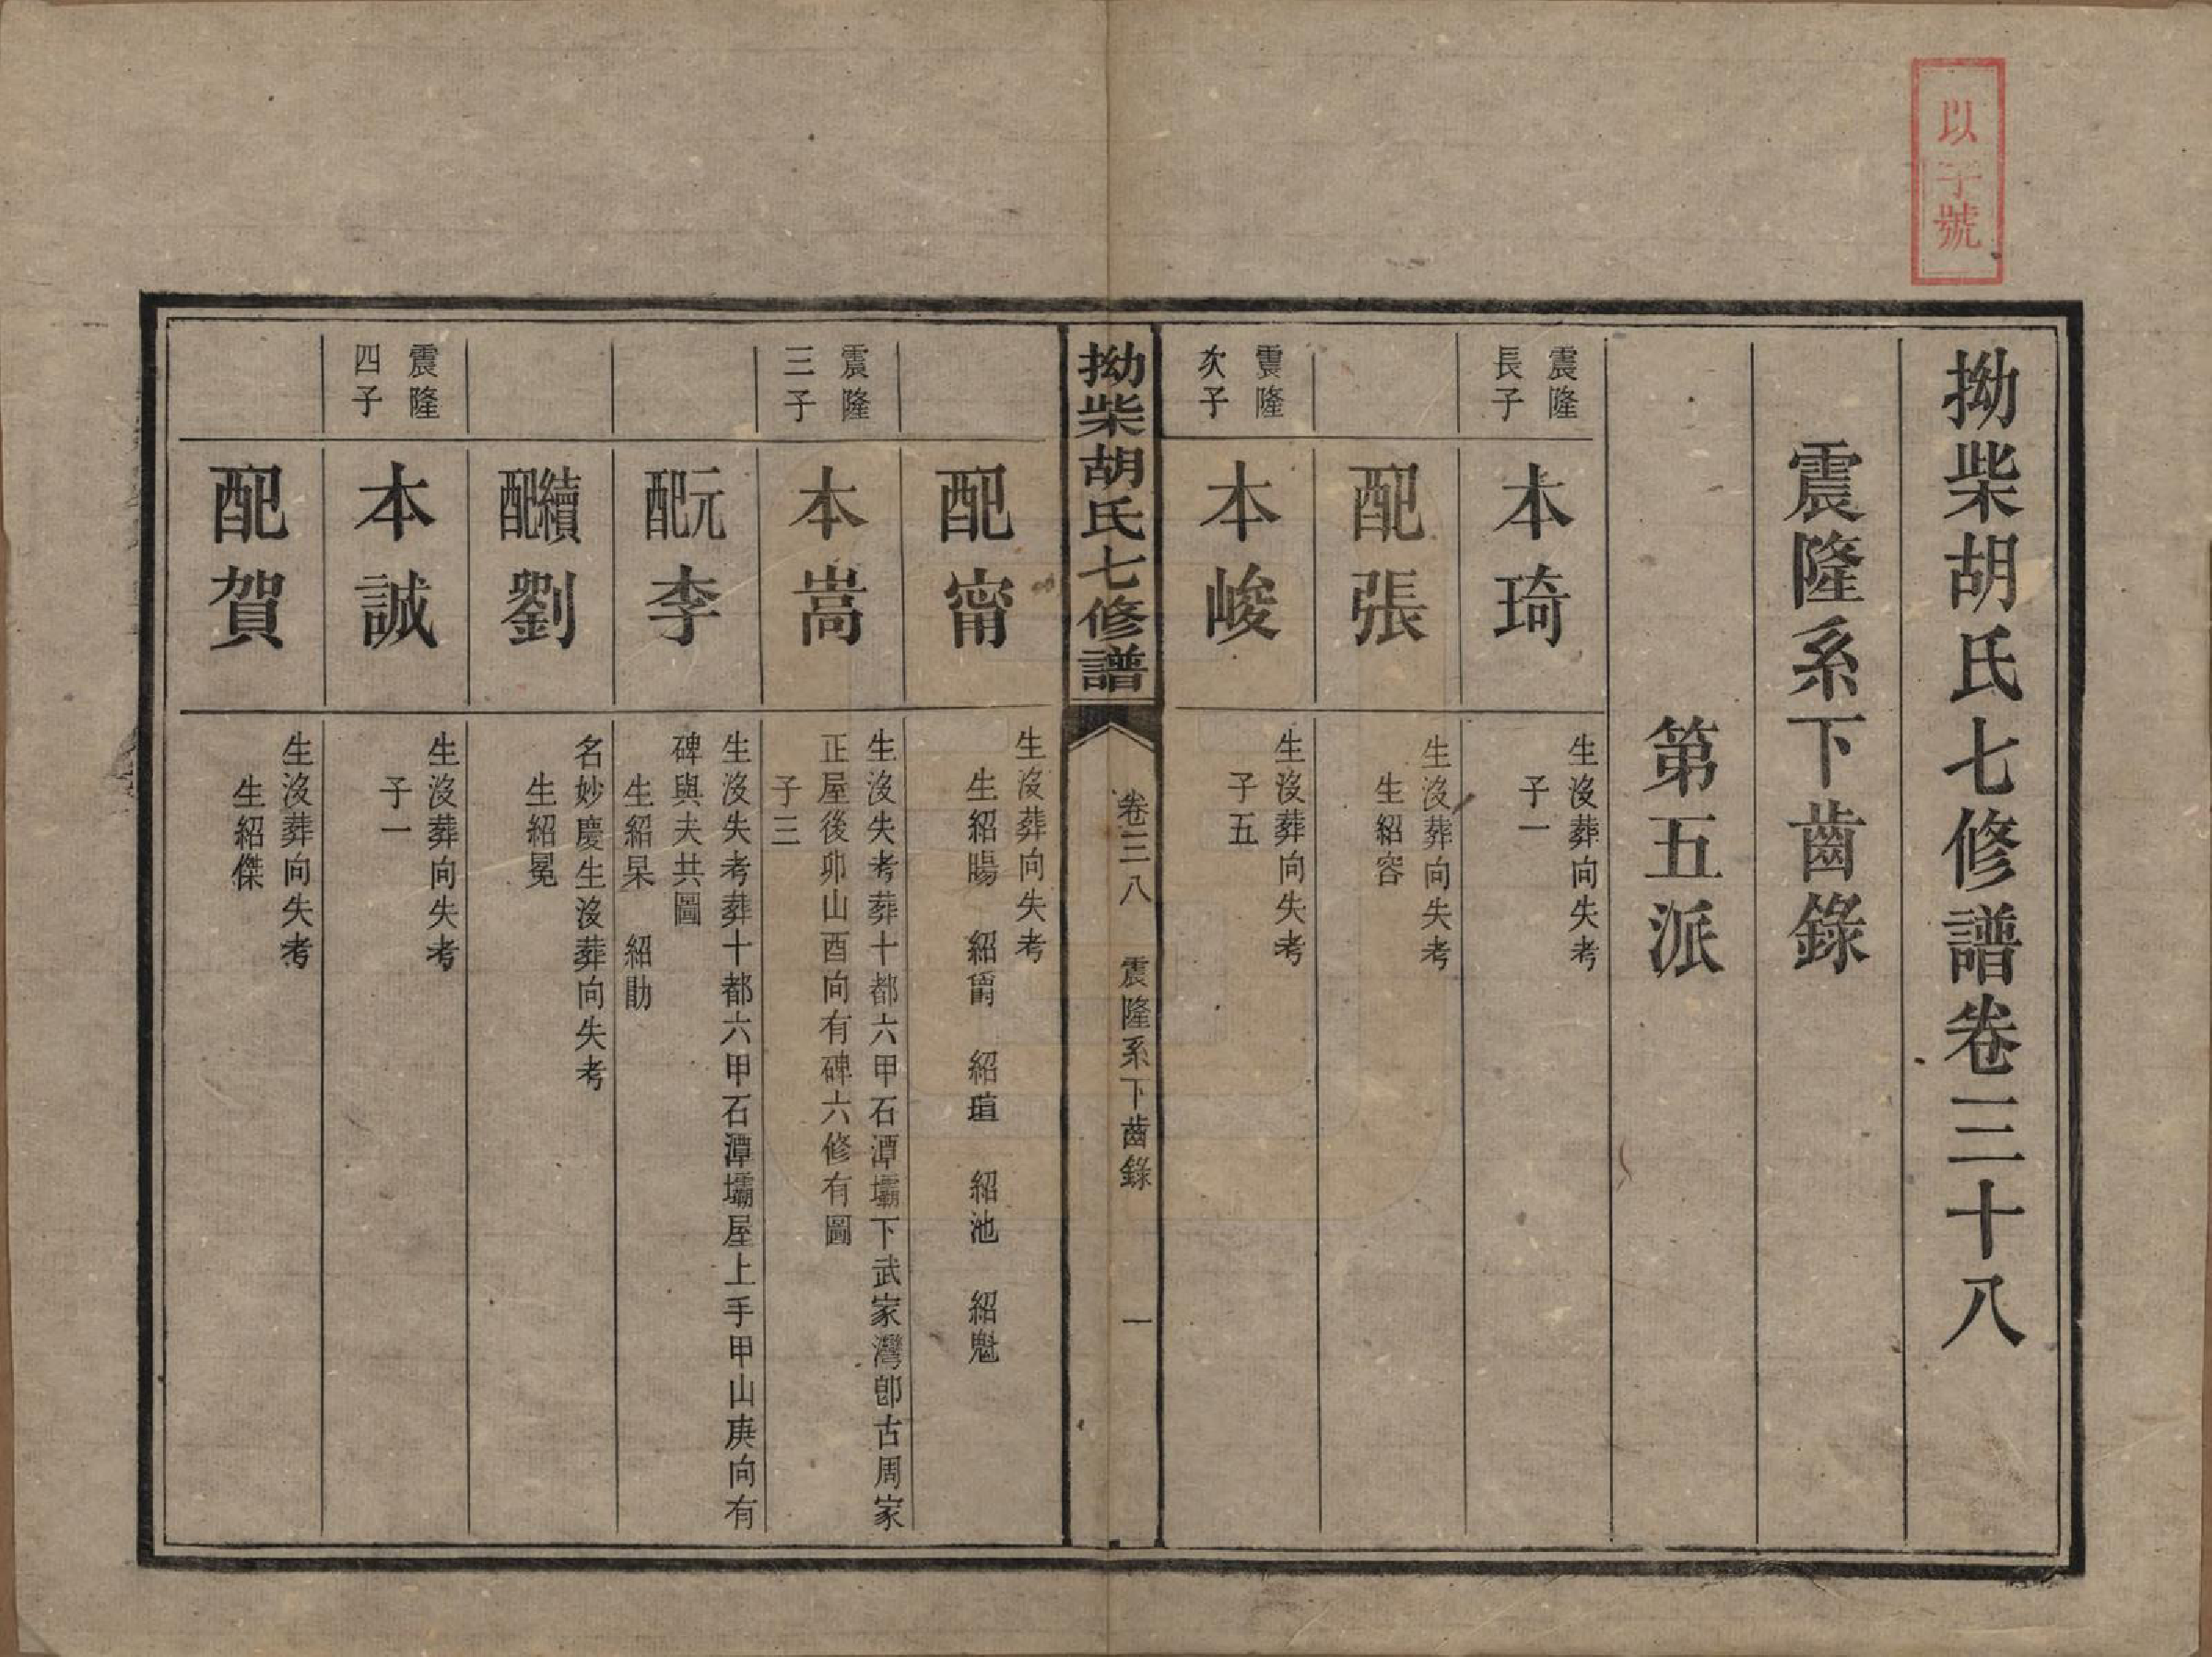 以字號
拗柴胡氏七修譜卷三十八
震隆系下齒錄
第五派
震隆
長子
本琦
生沒葬向失考
子一
配張
生沒葬向失考
生紹容
震隆
次子
本峻
生沒葬向失考
子五
拗柴胡氏七修譜
卷三八
震隆系下齒錄
一
配甯
生沒葬向失考
生紹暘 紹甯 紹瑄 紹池 紹魁
震隆
三子
本嵩
生沒失考葬十都六甲石潭壩下武家灣卽古周家
正屋後卯山酉向有碑六修有圖
子三
元配
李
生沒失考葬十都六甲石潭壩屋上手甲山庚向有
碑與夫共圖
生紹杲 紹勛
續配
劉
名妙慶生沒葬向失考
生紹冕
震隆
四子
本誠
生沒葬向失考
子一
配賀
生沒葬向失考
生紹傑